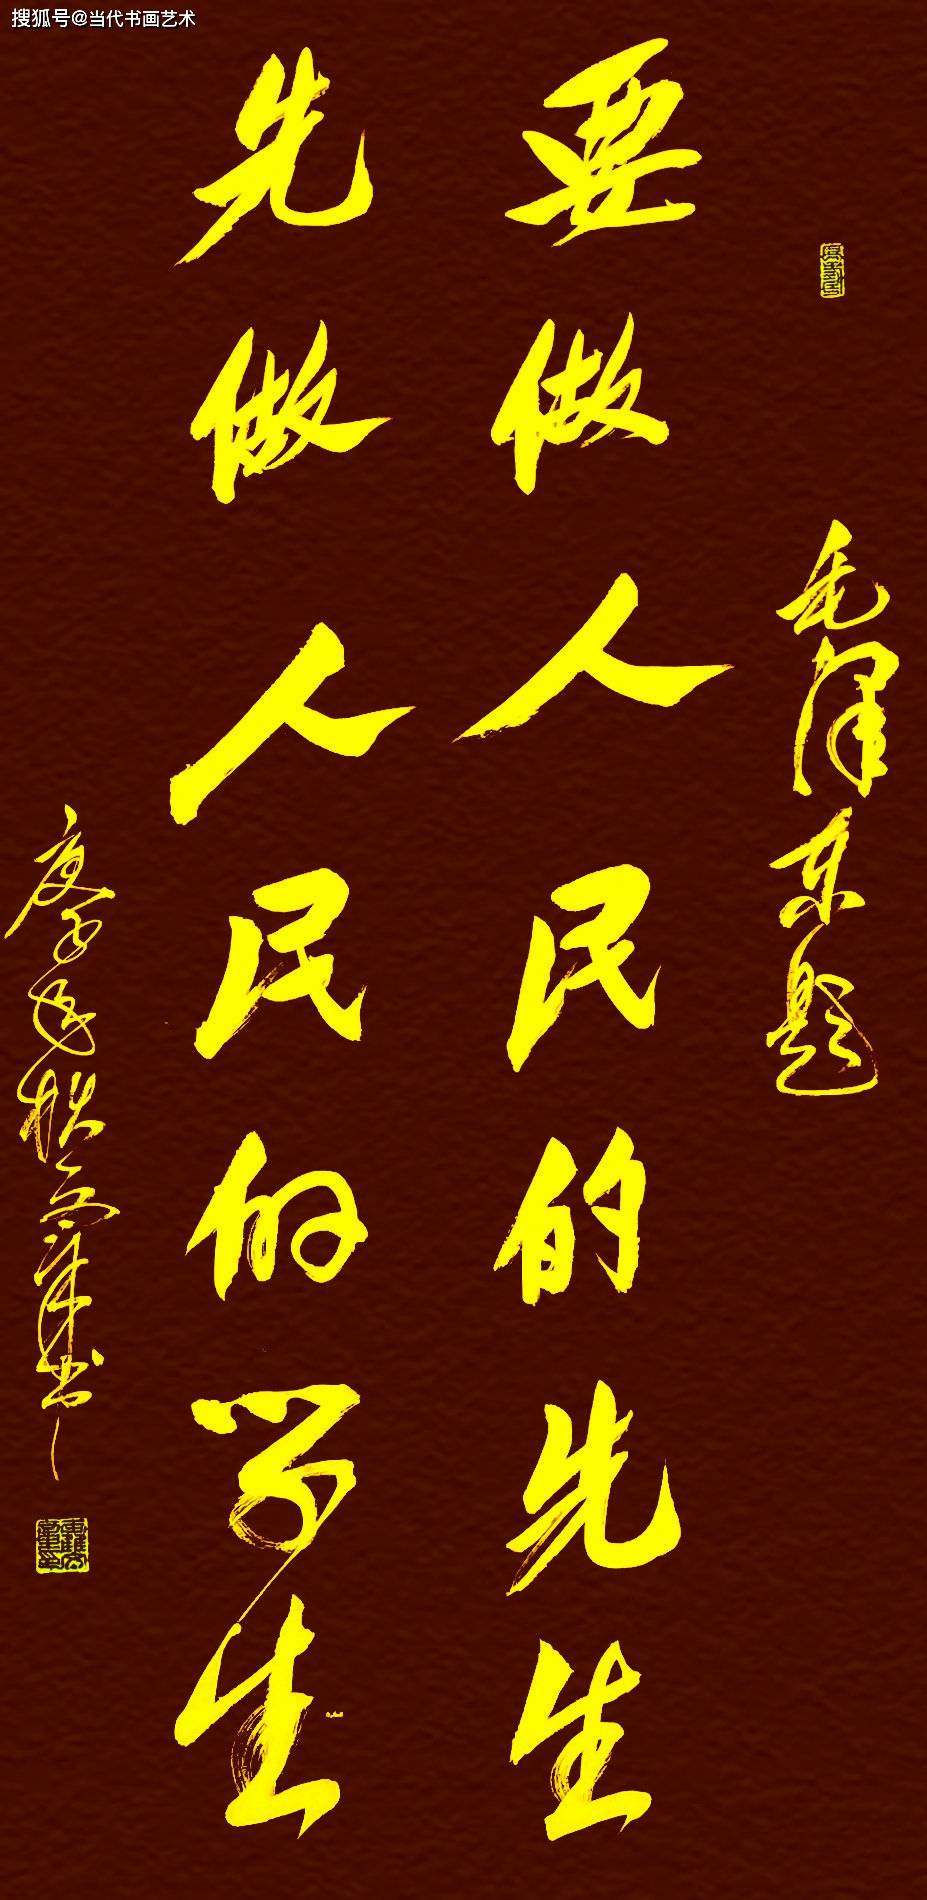 搜狐号@当代书画艺术
毛泽东题
要做人民的先生
先做人民的学生